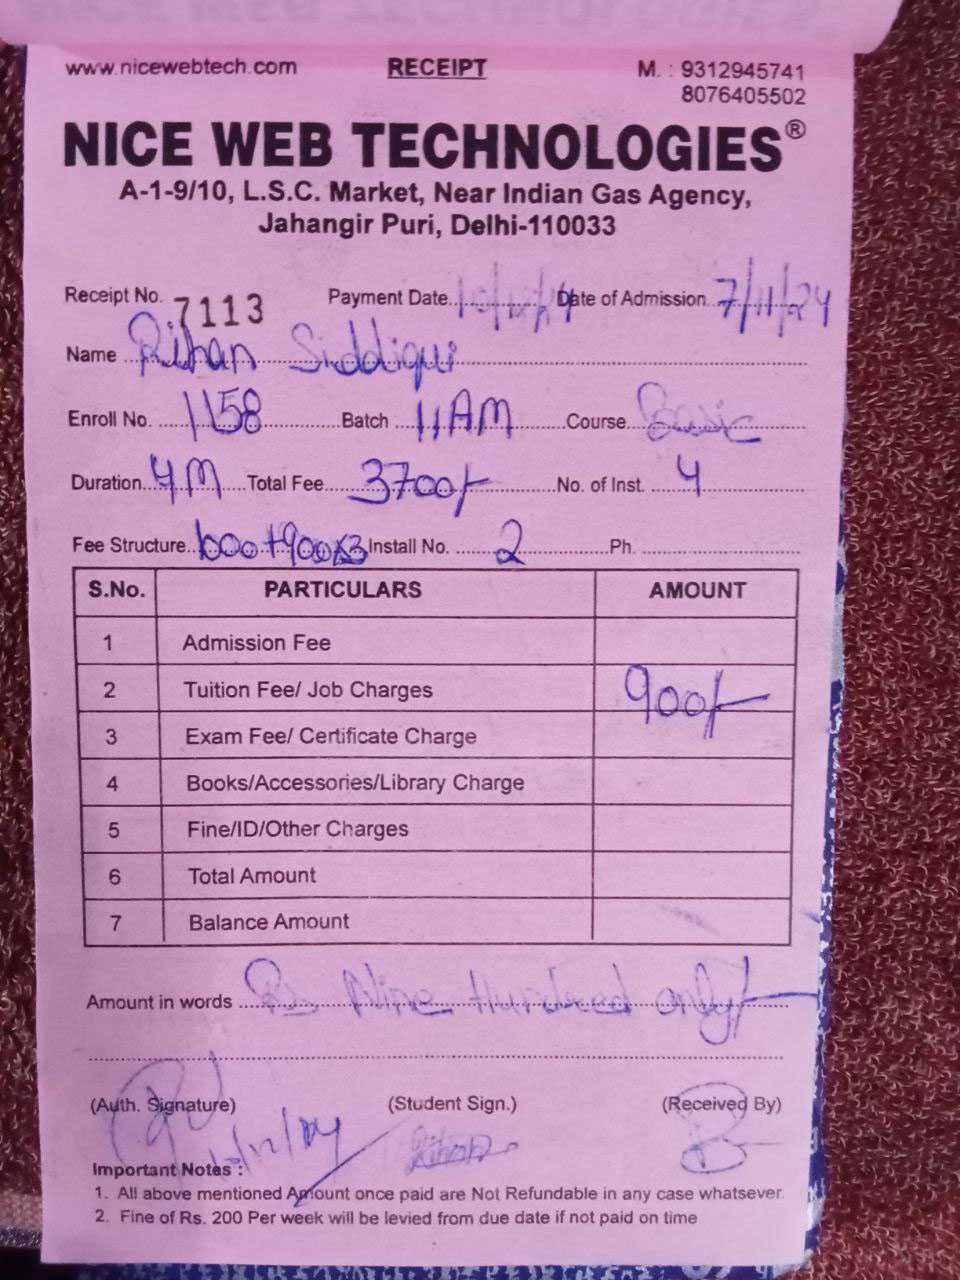 www.nicewebtech.com RECEIPT M. : 9312945741
8076405502
NICE WEB TECHNOLOGIES®
A-1-9/10, L.S.C. Market, Near Indian Gas Agency,
Jahangir Puri, Delhi-110033
Receipt No. 7113 Payment Date Date of Admission 7/11/24
Name Rihan Siddiqui
Enroll No. 1158 Batch 11AM Course Basic
Duration 4M Total Fee 3700/- No. of Inst. 4
Fee Structure 1000+900x3 Install No. 2 Ph.
S.No. PARTICULARS AMOUNT
1 Admission Fee
2 Tuition Fee/ Job Charges 900/-
3 Exam Fee/ Certificate Charge
4 Books/Accessories/Library Charge
5 Fine/ID/Other Charges
6 Total Amount
7 Balance Amount
Amount in words Rs Nine Hundred only/-
(Auth. Signature) (Student Sign.) (Received By)
Important Notes :
1. All above mentioned Amount once paid are Not Refundable in any case whatsever.
2. Fine of Rs. 200 Per week will be levied from due date if not paid on time